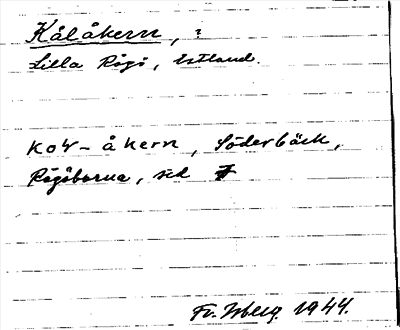 Kålåkern, ?
Lilla Rågö, Estland.
KoW-åkern, Söderbäck,
Rågöborna, sid 7
Fr. Isberg 1944.